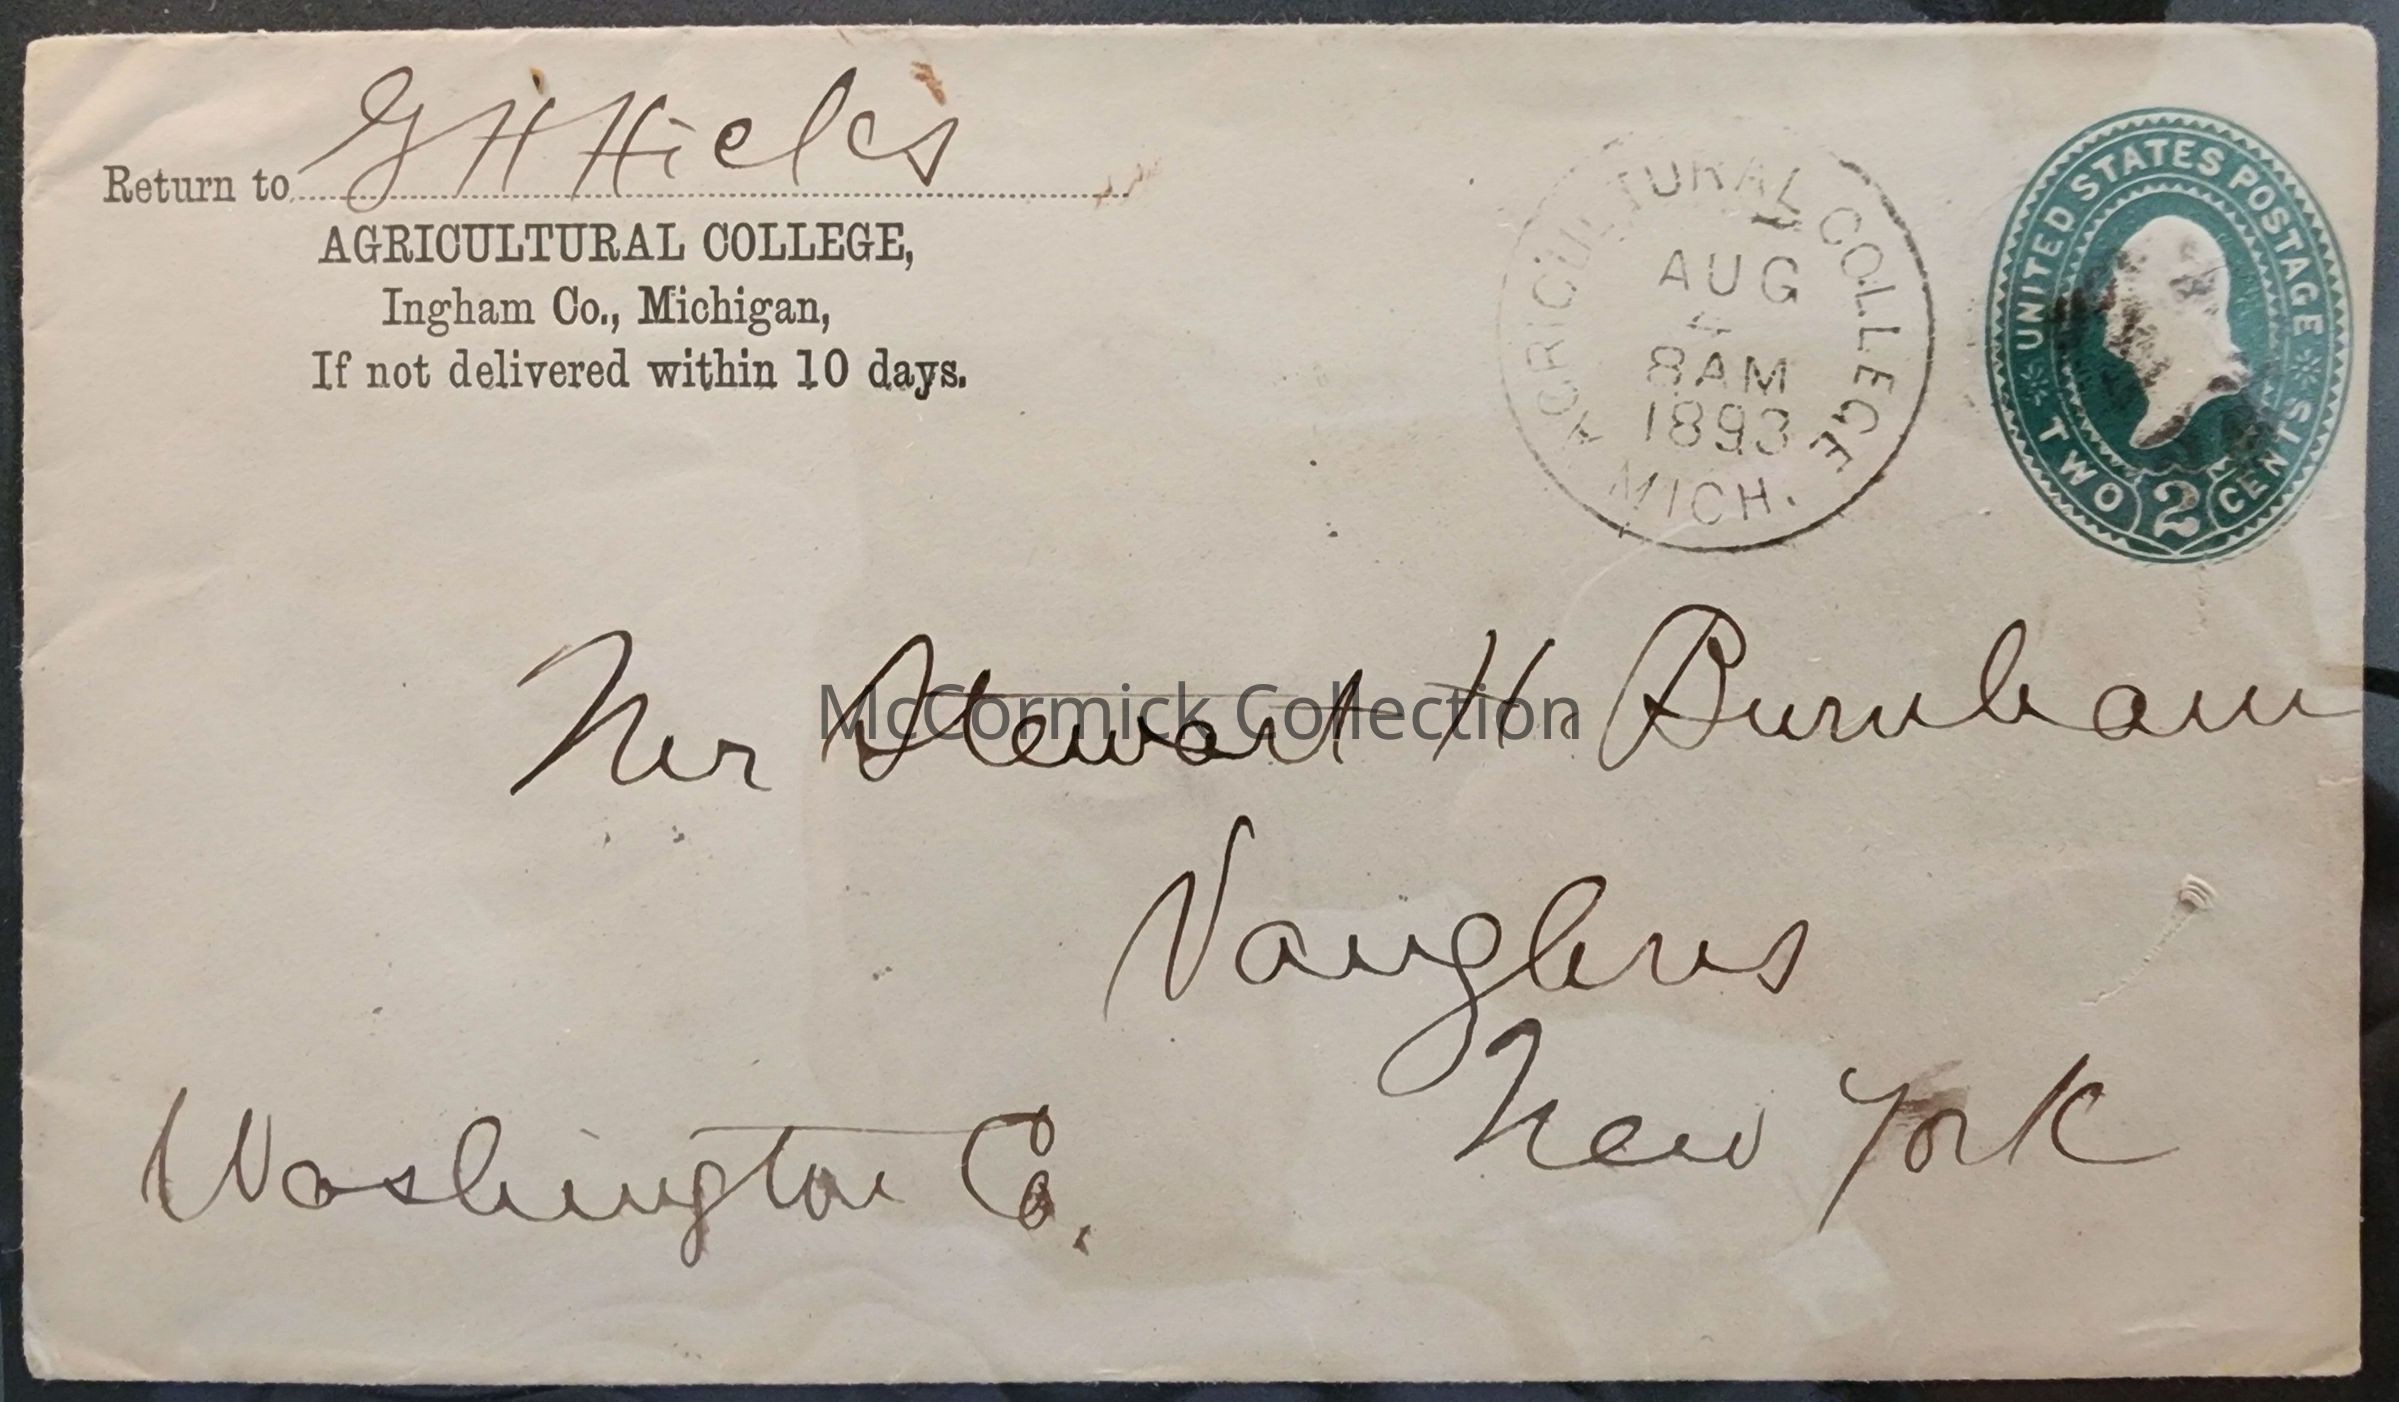 Return to G H Hicks
AGRICULTURAL COLLEGE,
Ingham Co., Michigan,
If not delivered within 10 days.
AGRICULTURAL COLLEGE
AUG
4
8 AM
1893
MICH.
UNITED STATES POSTAGE
TWO 2 CENTS
Mr Stewart H. Burnham
McCormick Collection
Vaughns
New York
Washington Co.